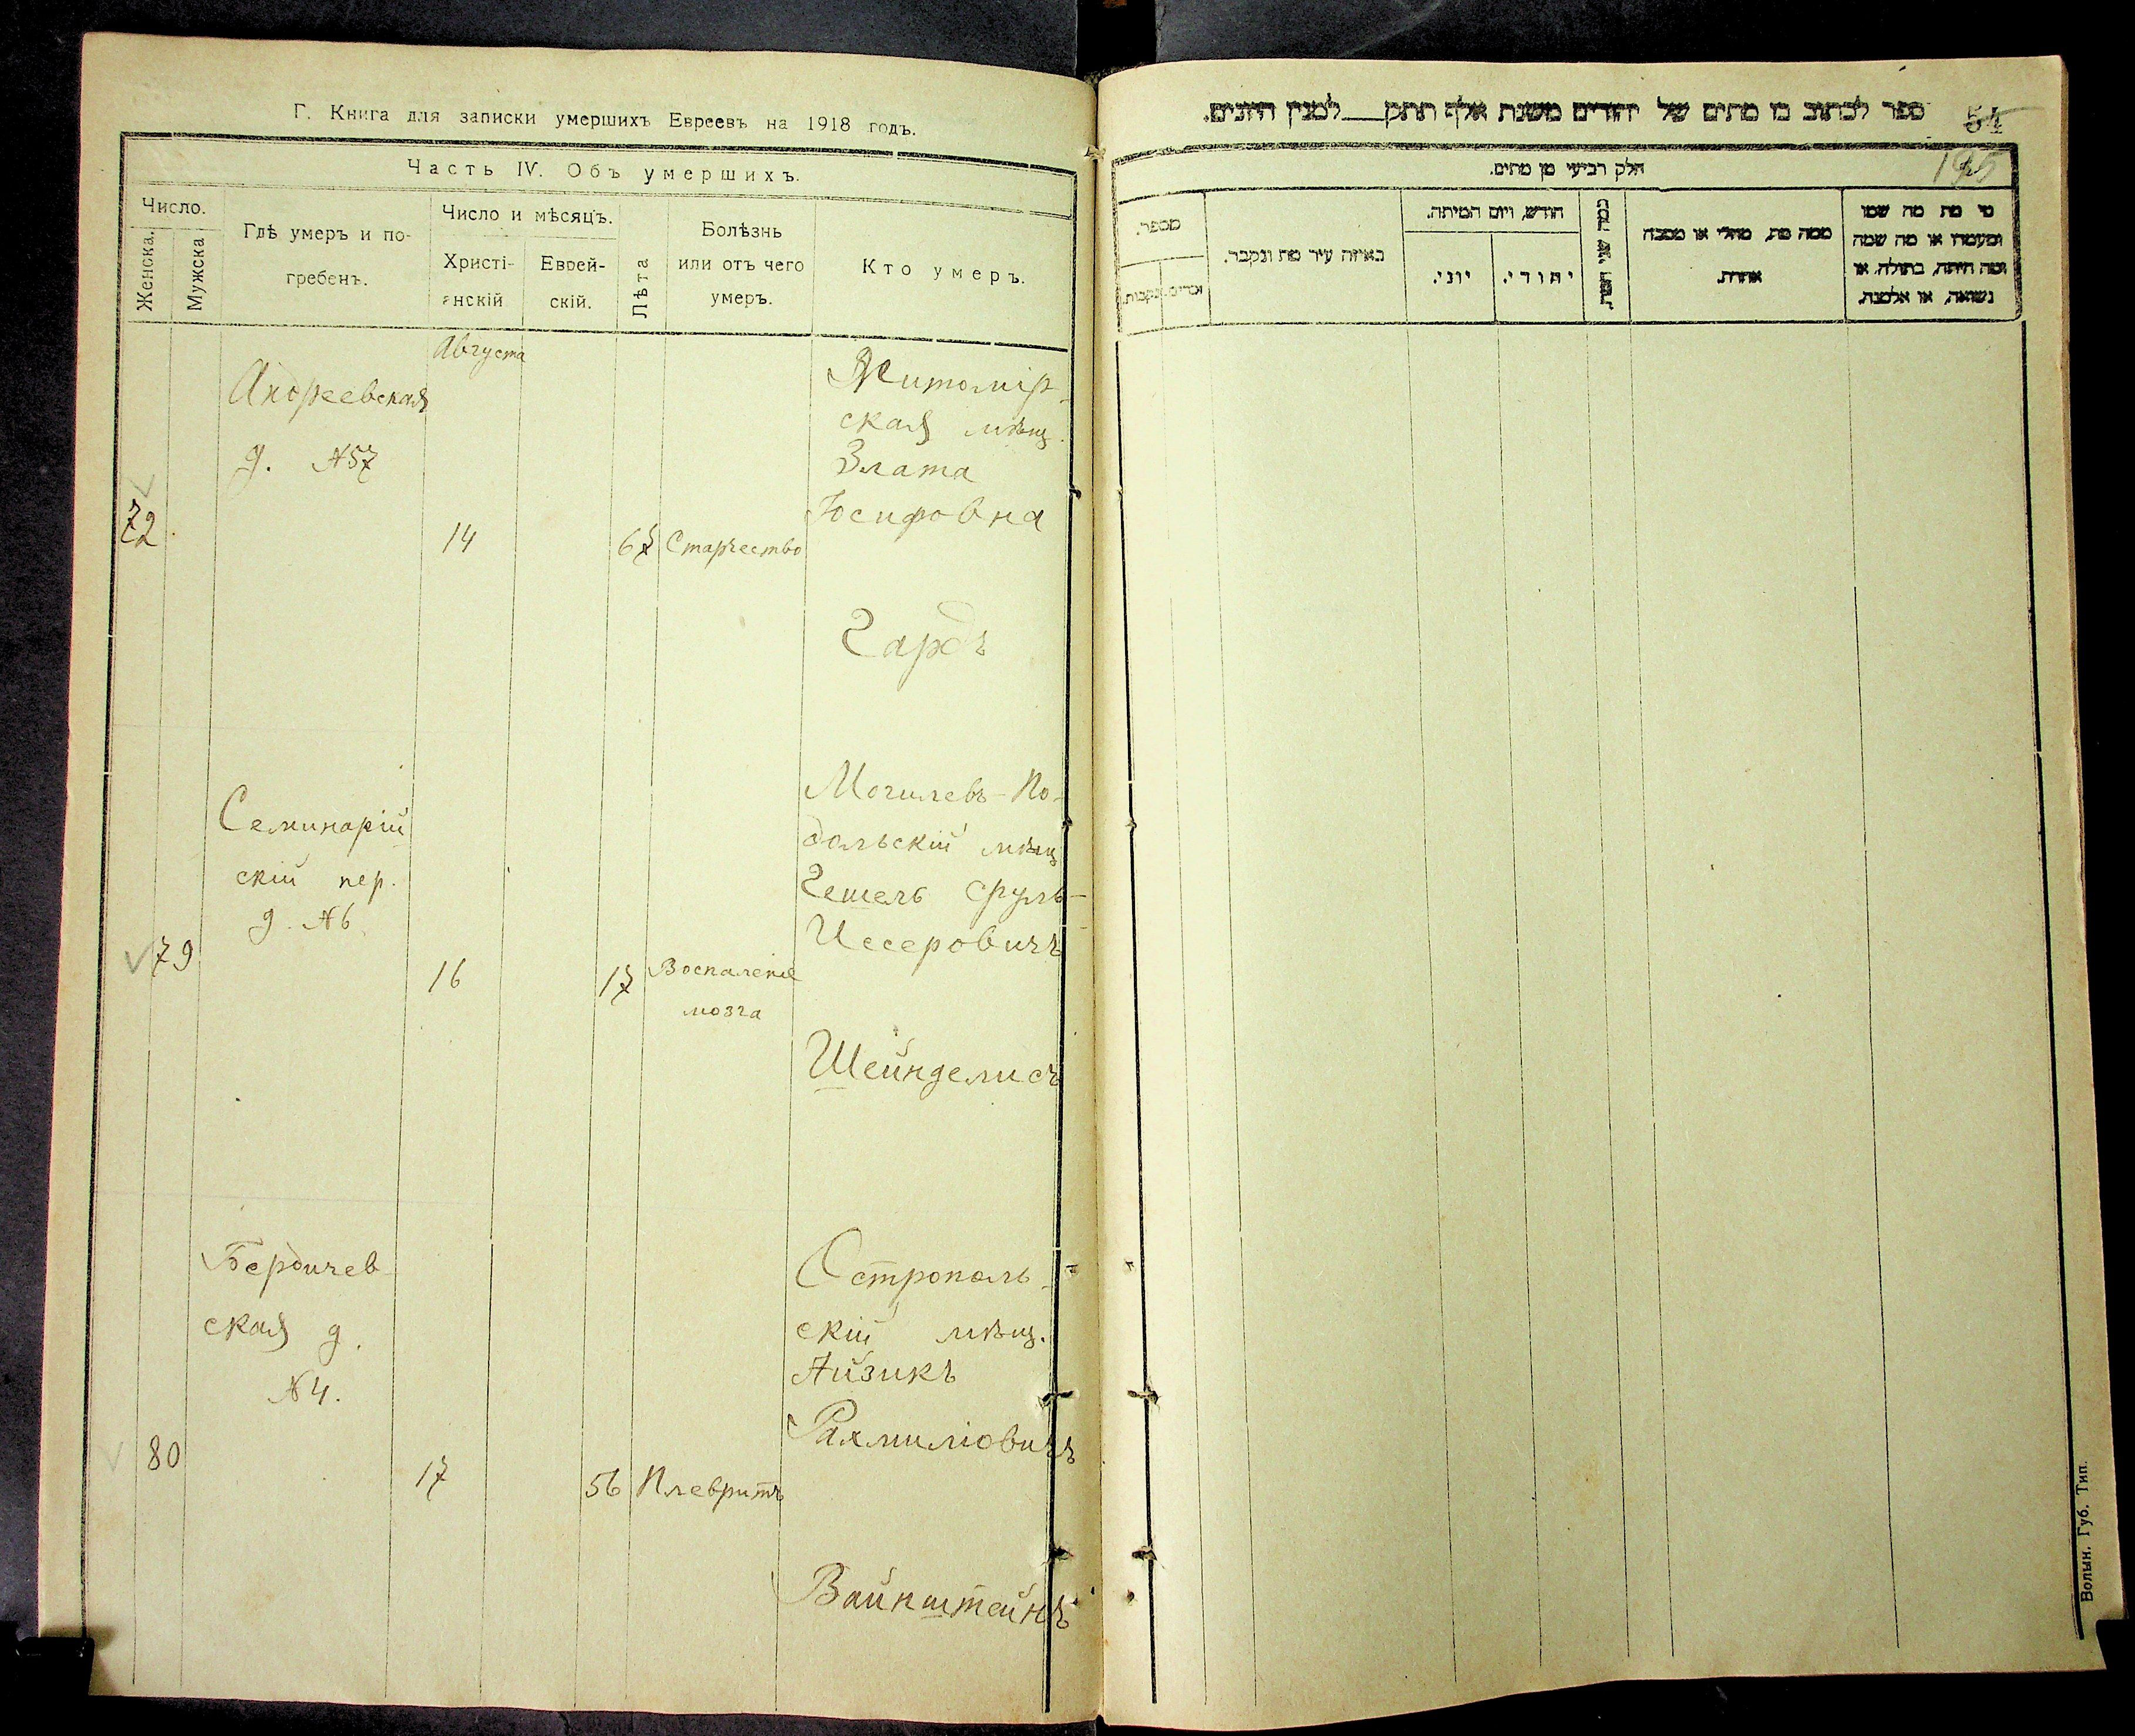 Г. Книга для записки умершихъ Евреевъ на 1918 годъ.
Часть IV. Объ умершихъ.
Число.
Женска.
Мужска
Гдѣ умеръ и по-
гребенъ.
Число и мѣсяцъ.
Христі-
анскій
Еврей-
скій.
Лѣта
Болѣзнь
или отъ чего
умеръ.
Кто умеръ.
Августа
Андреевская
д. №57
72
14
67
Старчество
Житомір-
ская мѣщ.
Злата
Іосифовна
Гардъ
Семинарій
скій пер.
д. №6
79
16
17
Воспаленіе
мозга
Могилевъ-По-
дольскій мѣщ
Гешель Сруль-
Исеровичъ
Шейнделисъ
Бердичев-
ская д.
№4.
80
17
56
Плевритъ
Острополь-
скій мѣщ.
Айзикъ
Рахмиліовичъ
Вайнштейнъ
ספר לכתוב בו מתים של יהודים משנת אלף תתק למנין היונים.
54
195
חלק רביעי מן מתים.
מספר.
זכרים.
נקבות.
באיזה עיר מת ונקבר.
חודש, ויום המיתה.
יוני.
יהודי.
כמה שני
ממה מת, מחלי או מסבה
אחרת.
מי מת מה שמו
ומעמדו או מה שמה
ומה היתה, בתולה, או
נשואה, או אלמנה.
Волын. Губ. Тип.